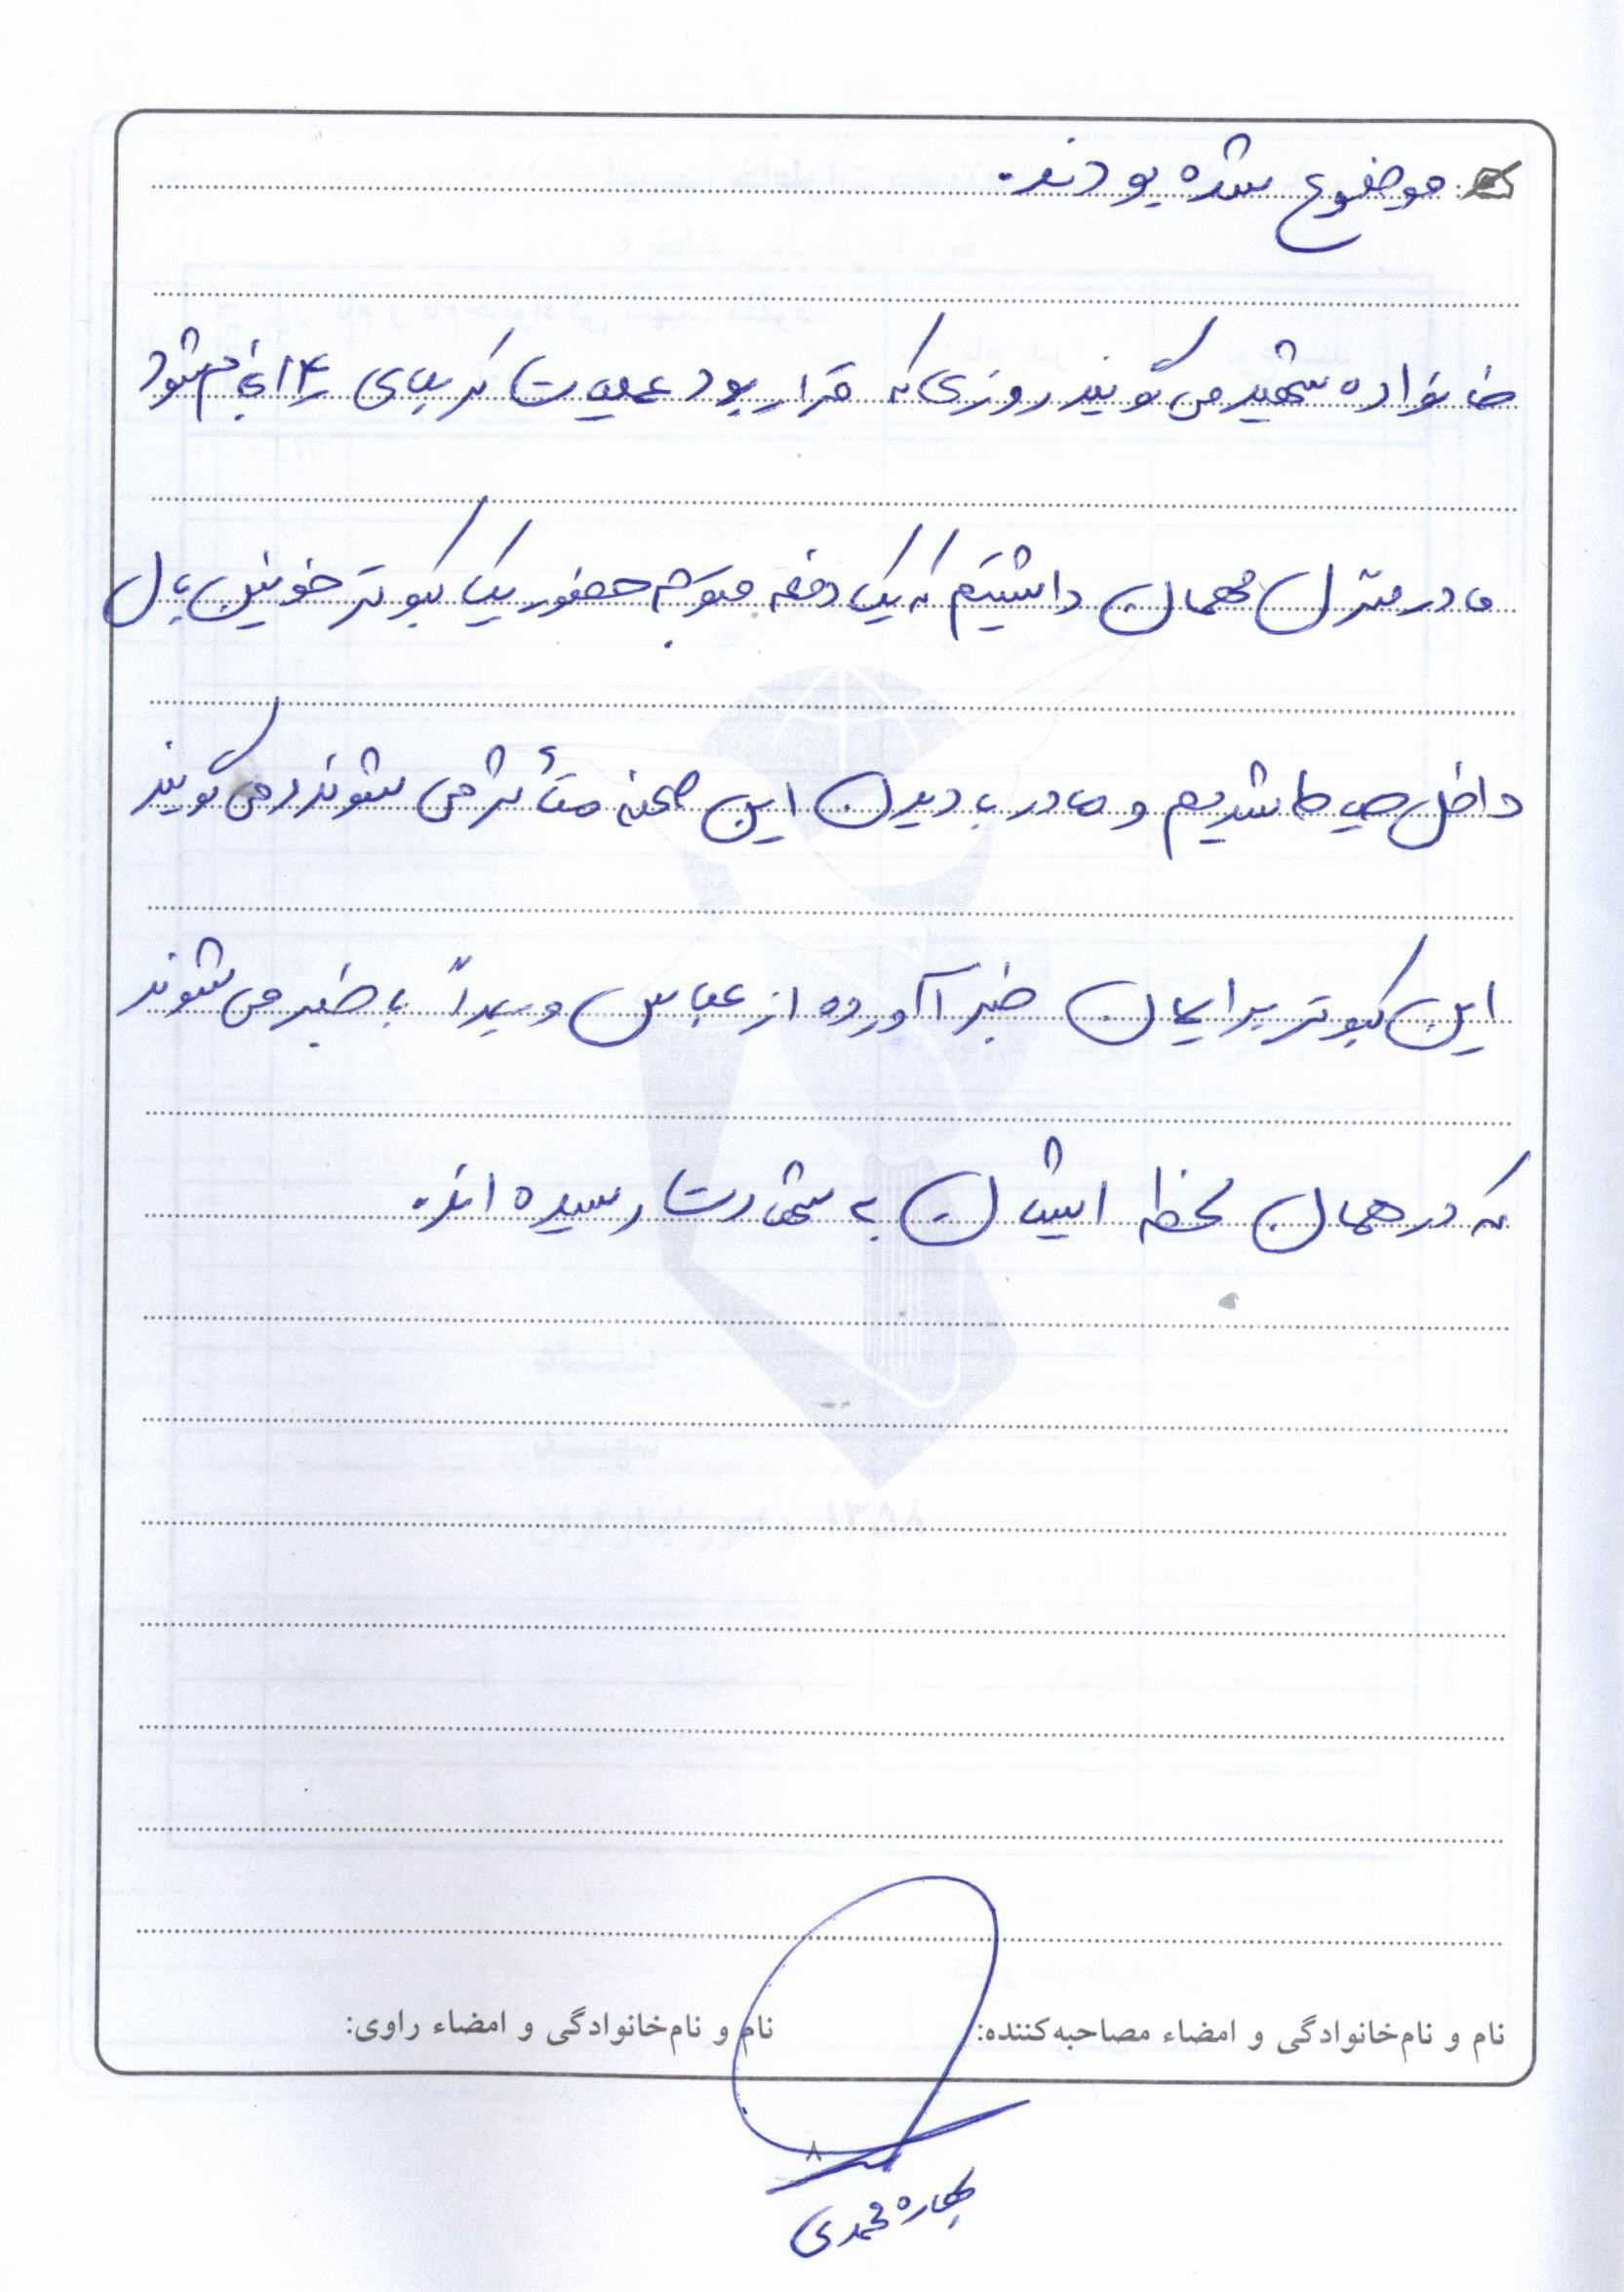 موضوع شده بودند.
خانواده شهید می گویند روزی که قرار بود عملیات کربلای ۴ انجام شود
ما در منزل مهمان داشتیم که یک دفعه متوجه حضور یک کبوتر خونین بال
داخل حیاط شدیم و مادر با دیدن این صحنه متأثر می شوند و می گویند
این کبوتر برایمان خبر آورده از عباس و بعداً با خبر می شوند
که در همان لحظه ایشان به شهادت رسیده اند.
نام و نام‌خانوادگی و امضاء مصاحبه‌کننده: نام و نام‌خانوادگی و امضاء راوی:
۸
بهاره محمدی